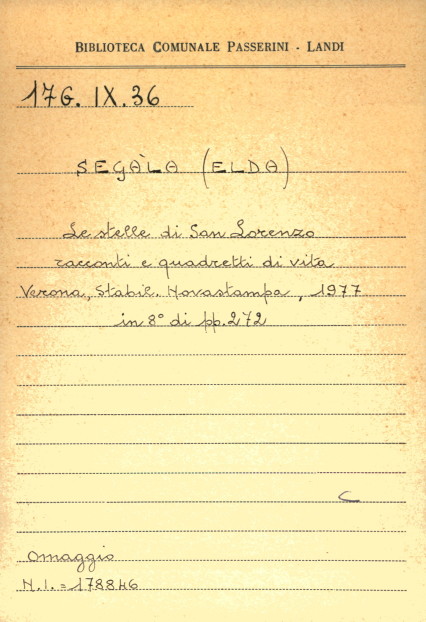 BIBLIOTECA COMUNALE PASSERINI - LANDI
17G. IX. 36
SEGÀLA (ELDA)
Le stelle di San Lorenzo
racconti e quadretti di vita
Verona, Stabil. Novastampa, 1977
in 8° di pp. 272
C
Omaggio
N.I. = 178846